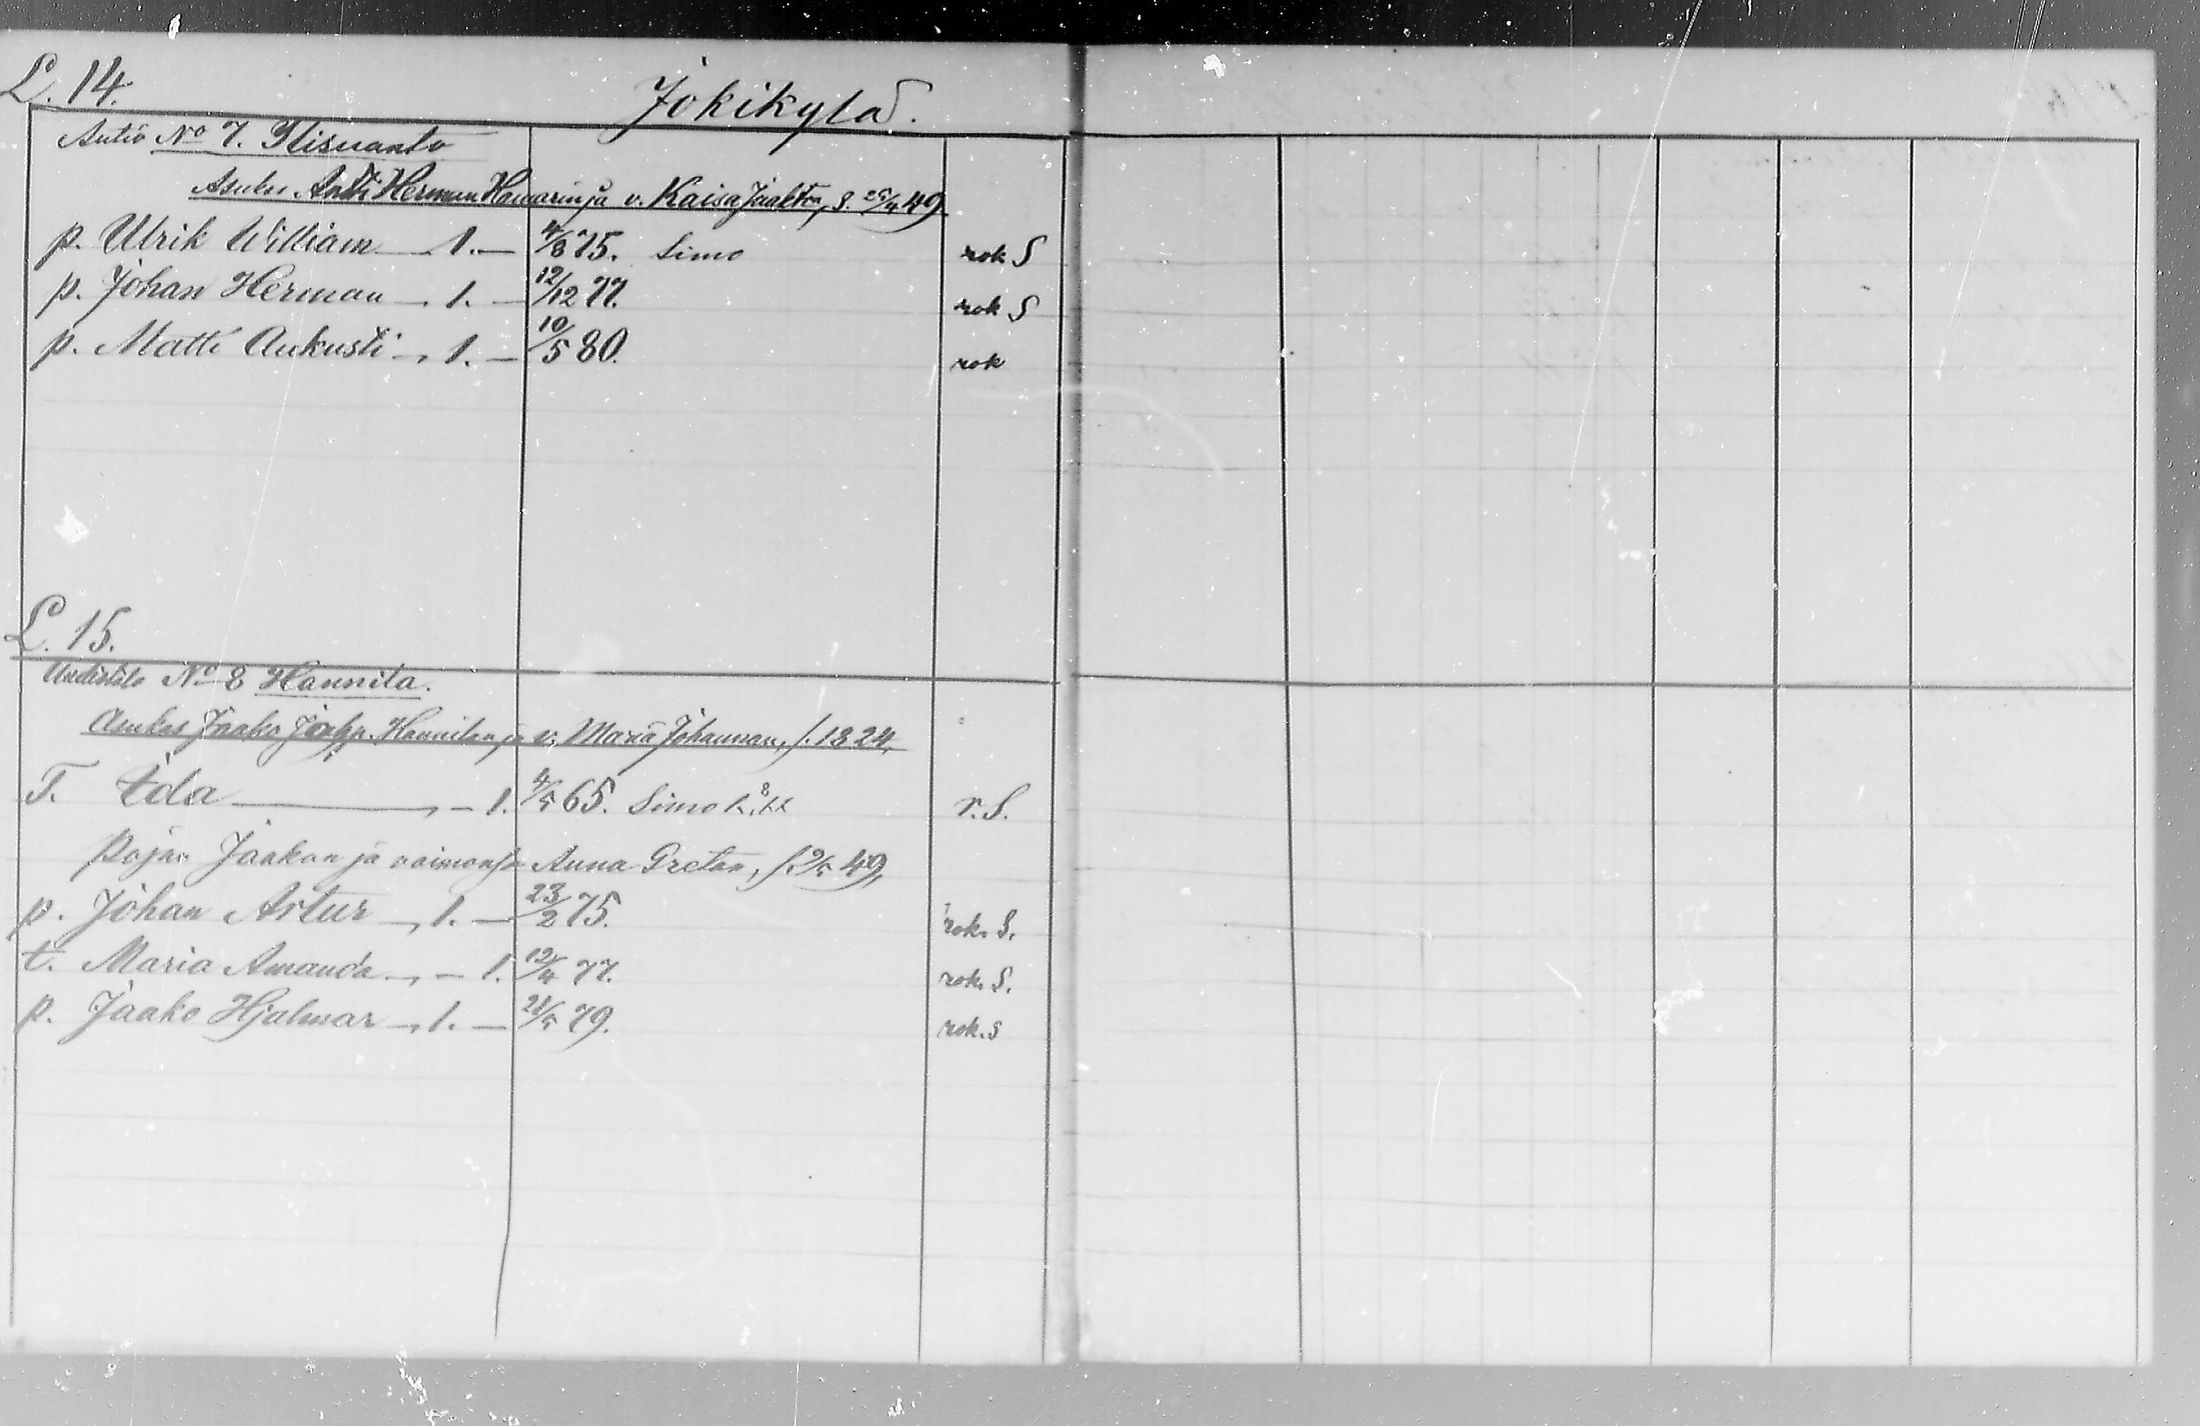 L. 14.
Jokikylä.
Autio No 7. Ylisuanto
Asukas Antti Herman Hamarin ja v. Kaisa Jaakton, S. 25/4 49
p. Ulrik William 1. 4/8 75. Simo rok S
p. Johan Herman 1. 12/12 77. rok S
p. Matti Aukusti 1. 10/5 80. rok
L. 15.
Uudistalo No 8 Hannila.
Asukas Jaako Hannilan ja v. Maria Johannan, s. 1824,
T. Ida 1. 4/5 65. Simo r. S.
Pojan Jaakon ja vaimonsa Anna Gretan, 49,
p. Johan Artur 1. 23/2 75. rok. S.
t. Maria Amanda 1. 12/4 77. rok. S.
p. Jaako Hjalmar 1. 21/5 79. rok. s